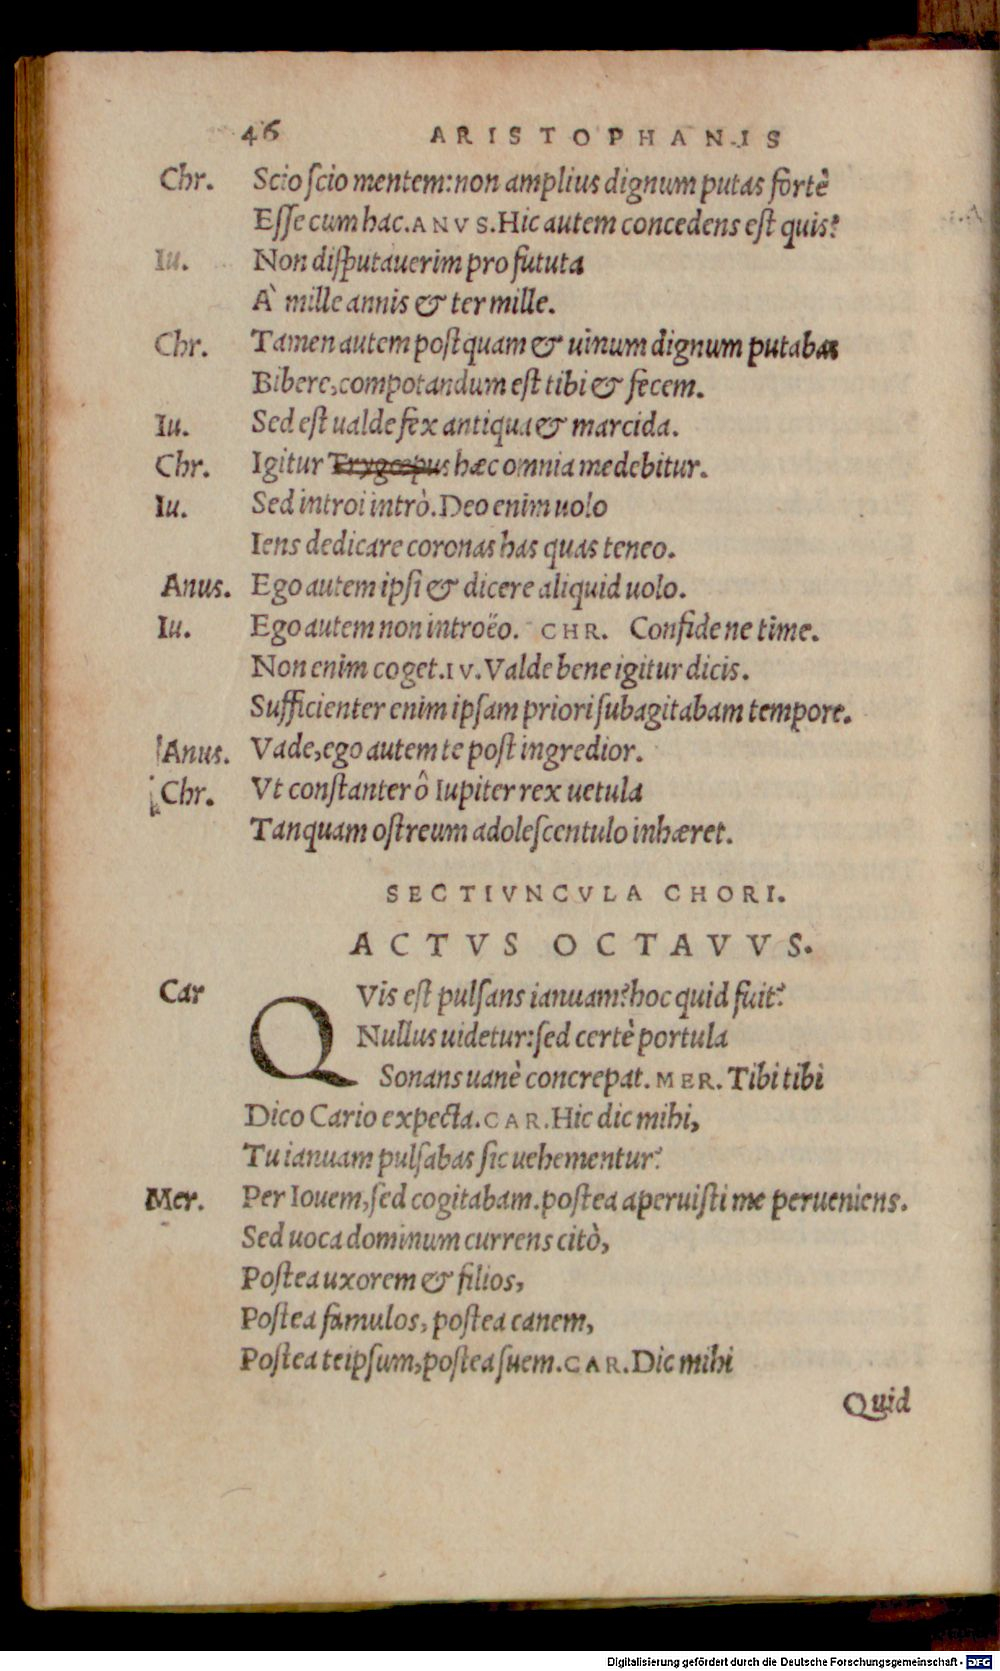 46 ARISTOPHANIS
Chr. Scio ſcio mentem: non amplius dignum putas fortè
Eſſe cum hac. ANVS. Hic autem concedens eſt quis?
Iu. Non diſputauerim pro fututa
À mille annis & ter mille.
Chr. Tamen autem poſtquam & uinum dignum putabas
Bibere, compotandum eſt tibi & fecem.
Iu. Sed eſt ualde fex antiqua & marcida.
Chr. Igitur Trygœpus hæc omnia medebitur.
Iu. Sed introi intrò. Deo enim uolo
Iens dedicare coronas has quas teneo.
Anus. Ego autem ipſi & dicere aliquid uolo.
Iu. Ego autem non introëo. CHR. Confide ne time.
Non enim coget. IV. Valde bene igitur dicis.
Sufficienter enim ipſam priori ſubagitabam tempore.
Anus. Vade, ego autem te poſt ingredior.
Chr. Vt conſtanter ô Iupiter rex uetula
Tanquam oſtreum adoleſcentulo inhæret.
SECTIVNCVLA CHORI.
ACTVS OCTAVVS.
Car QVis eſt pulſans ianuam? hoc quid fuit?
Nullus uidetur: ſed certè portula
Sonans uanè concrepat. MER. Tibi tibi
Dico Cario expecta. CAR. Hic dic mihi,
Tu ianuam pulſabas ſic uehementur?
Mer. Per Iouem, ſed cogitabam. poſtea aperuiſti me perueniens.
Sed uoca dominum currens citò,
Poſtea uxorem & filios,
Poſtea famulos, poſtea canem,
Poſtea teipſum, poſtea ſuem. CAR. Dic mihi
Quid
Digitalisierung gefördert durch die Deutsche Forschungsgemeinschaft - DFG